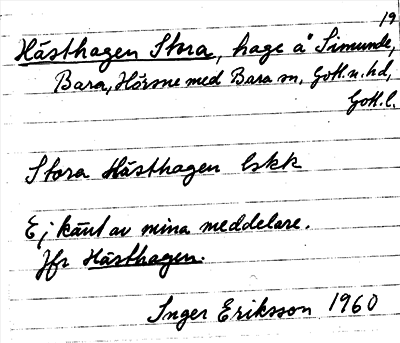 19
Hästhagen Stora, hage å Simunde,
Bara, Hörsne med Bara sn, Gotl. n. hd,
Gotl. l.
Stora Hästhagen Eskk
Ej känt av mina meddelare.
Jfr Hästhagen.
Inger Eriksson 1960